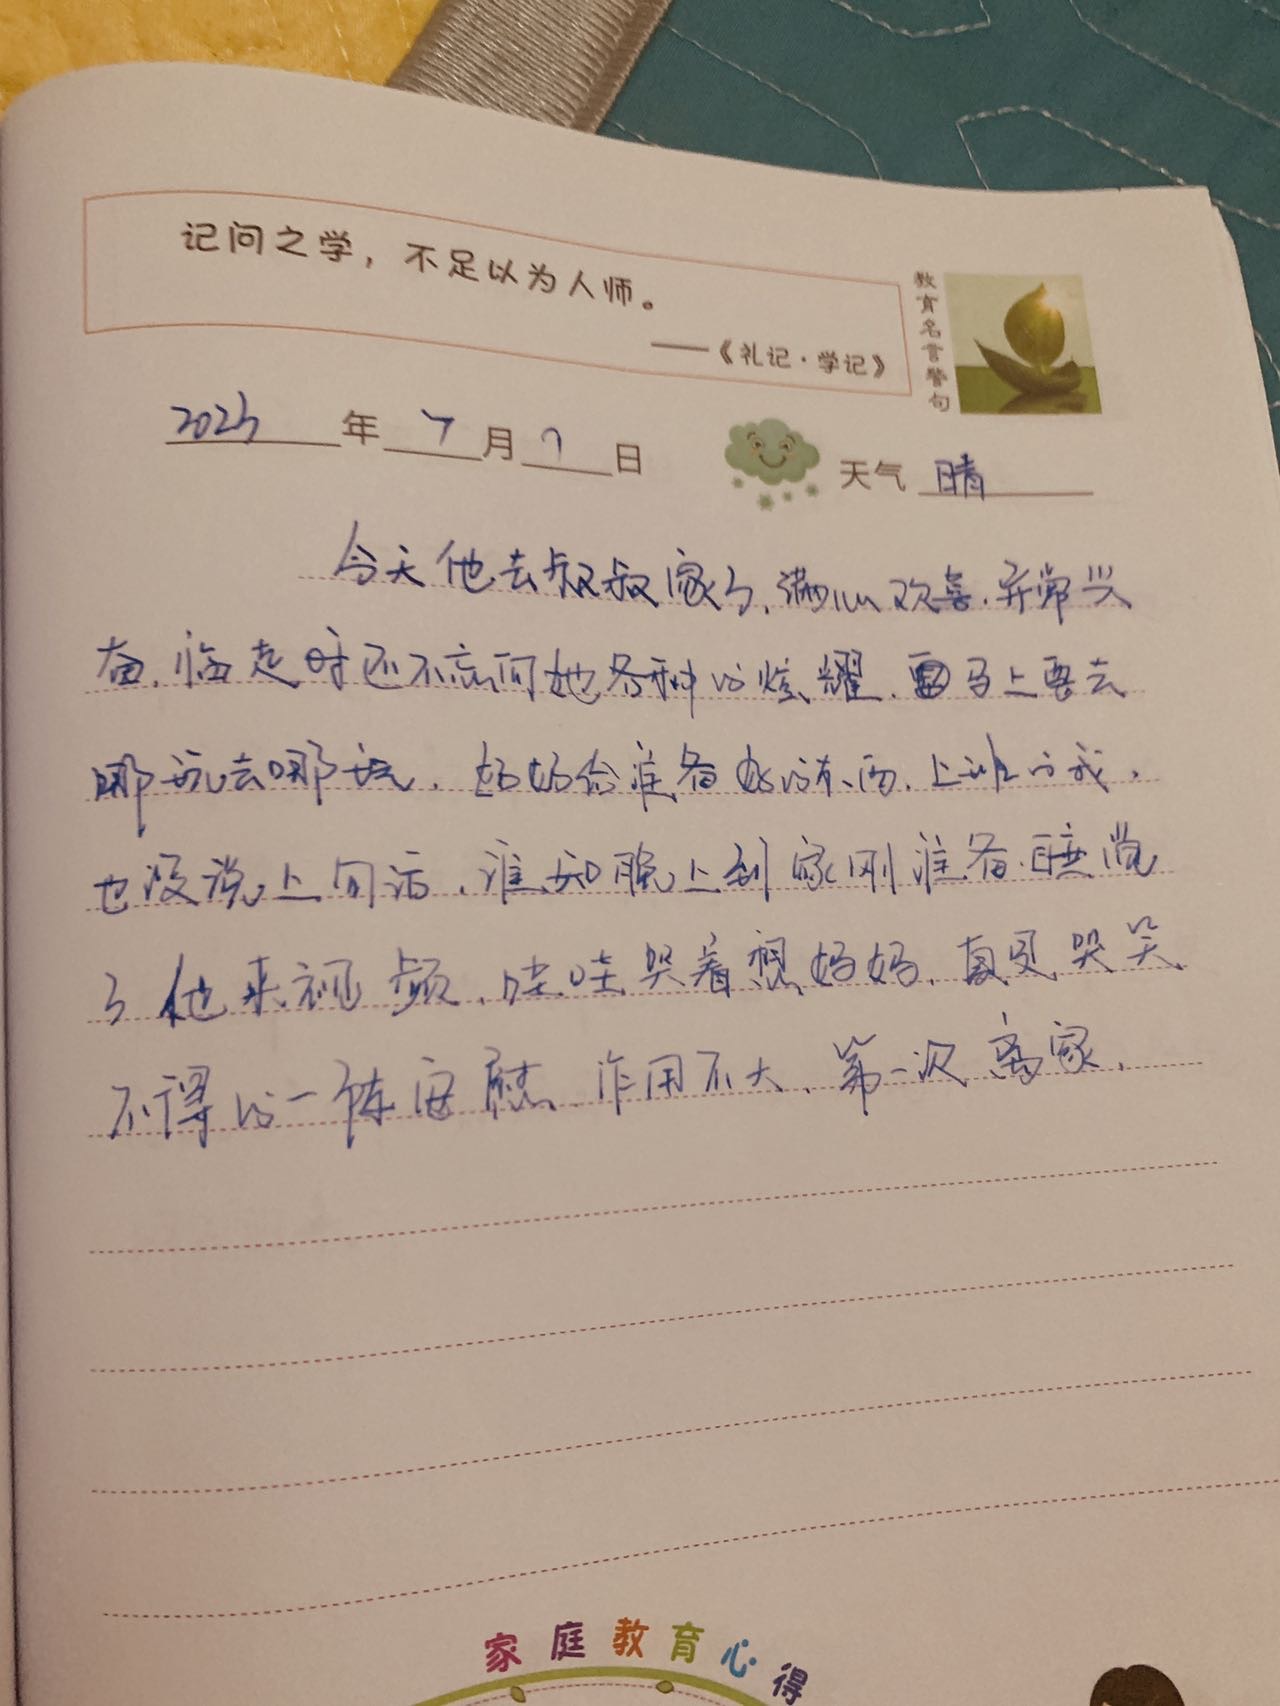 记问之学，不足以为人师。
——《礼记·学记》
教育名言警句
2023年7月7日 天气 晴
今天他去叔叔家了，满心欢喜，异常兴
奋，临走时还不忘向她各种的炫耀，马上要去
哪玩去哪玩，妈妈给准备好的东西，上班的我，
也没说上句话，谁知晚上到家刚准备睡觉
了他来视频，哇哇哭着想妈妈，真是哭笑
不得的一阵安慰，作用不大，第一次离家，
家庭教育心得